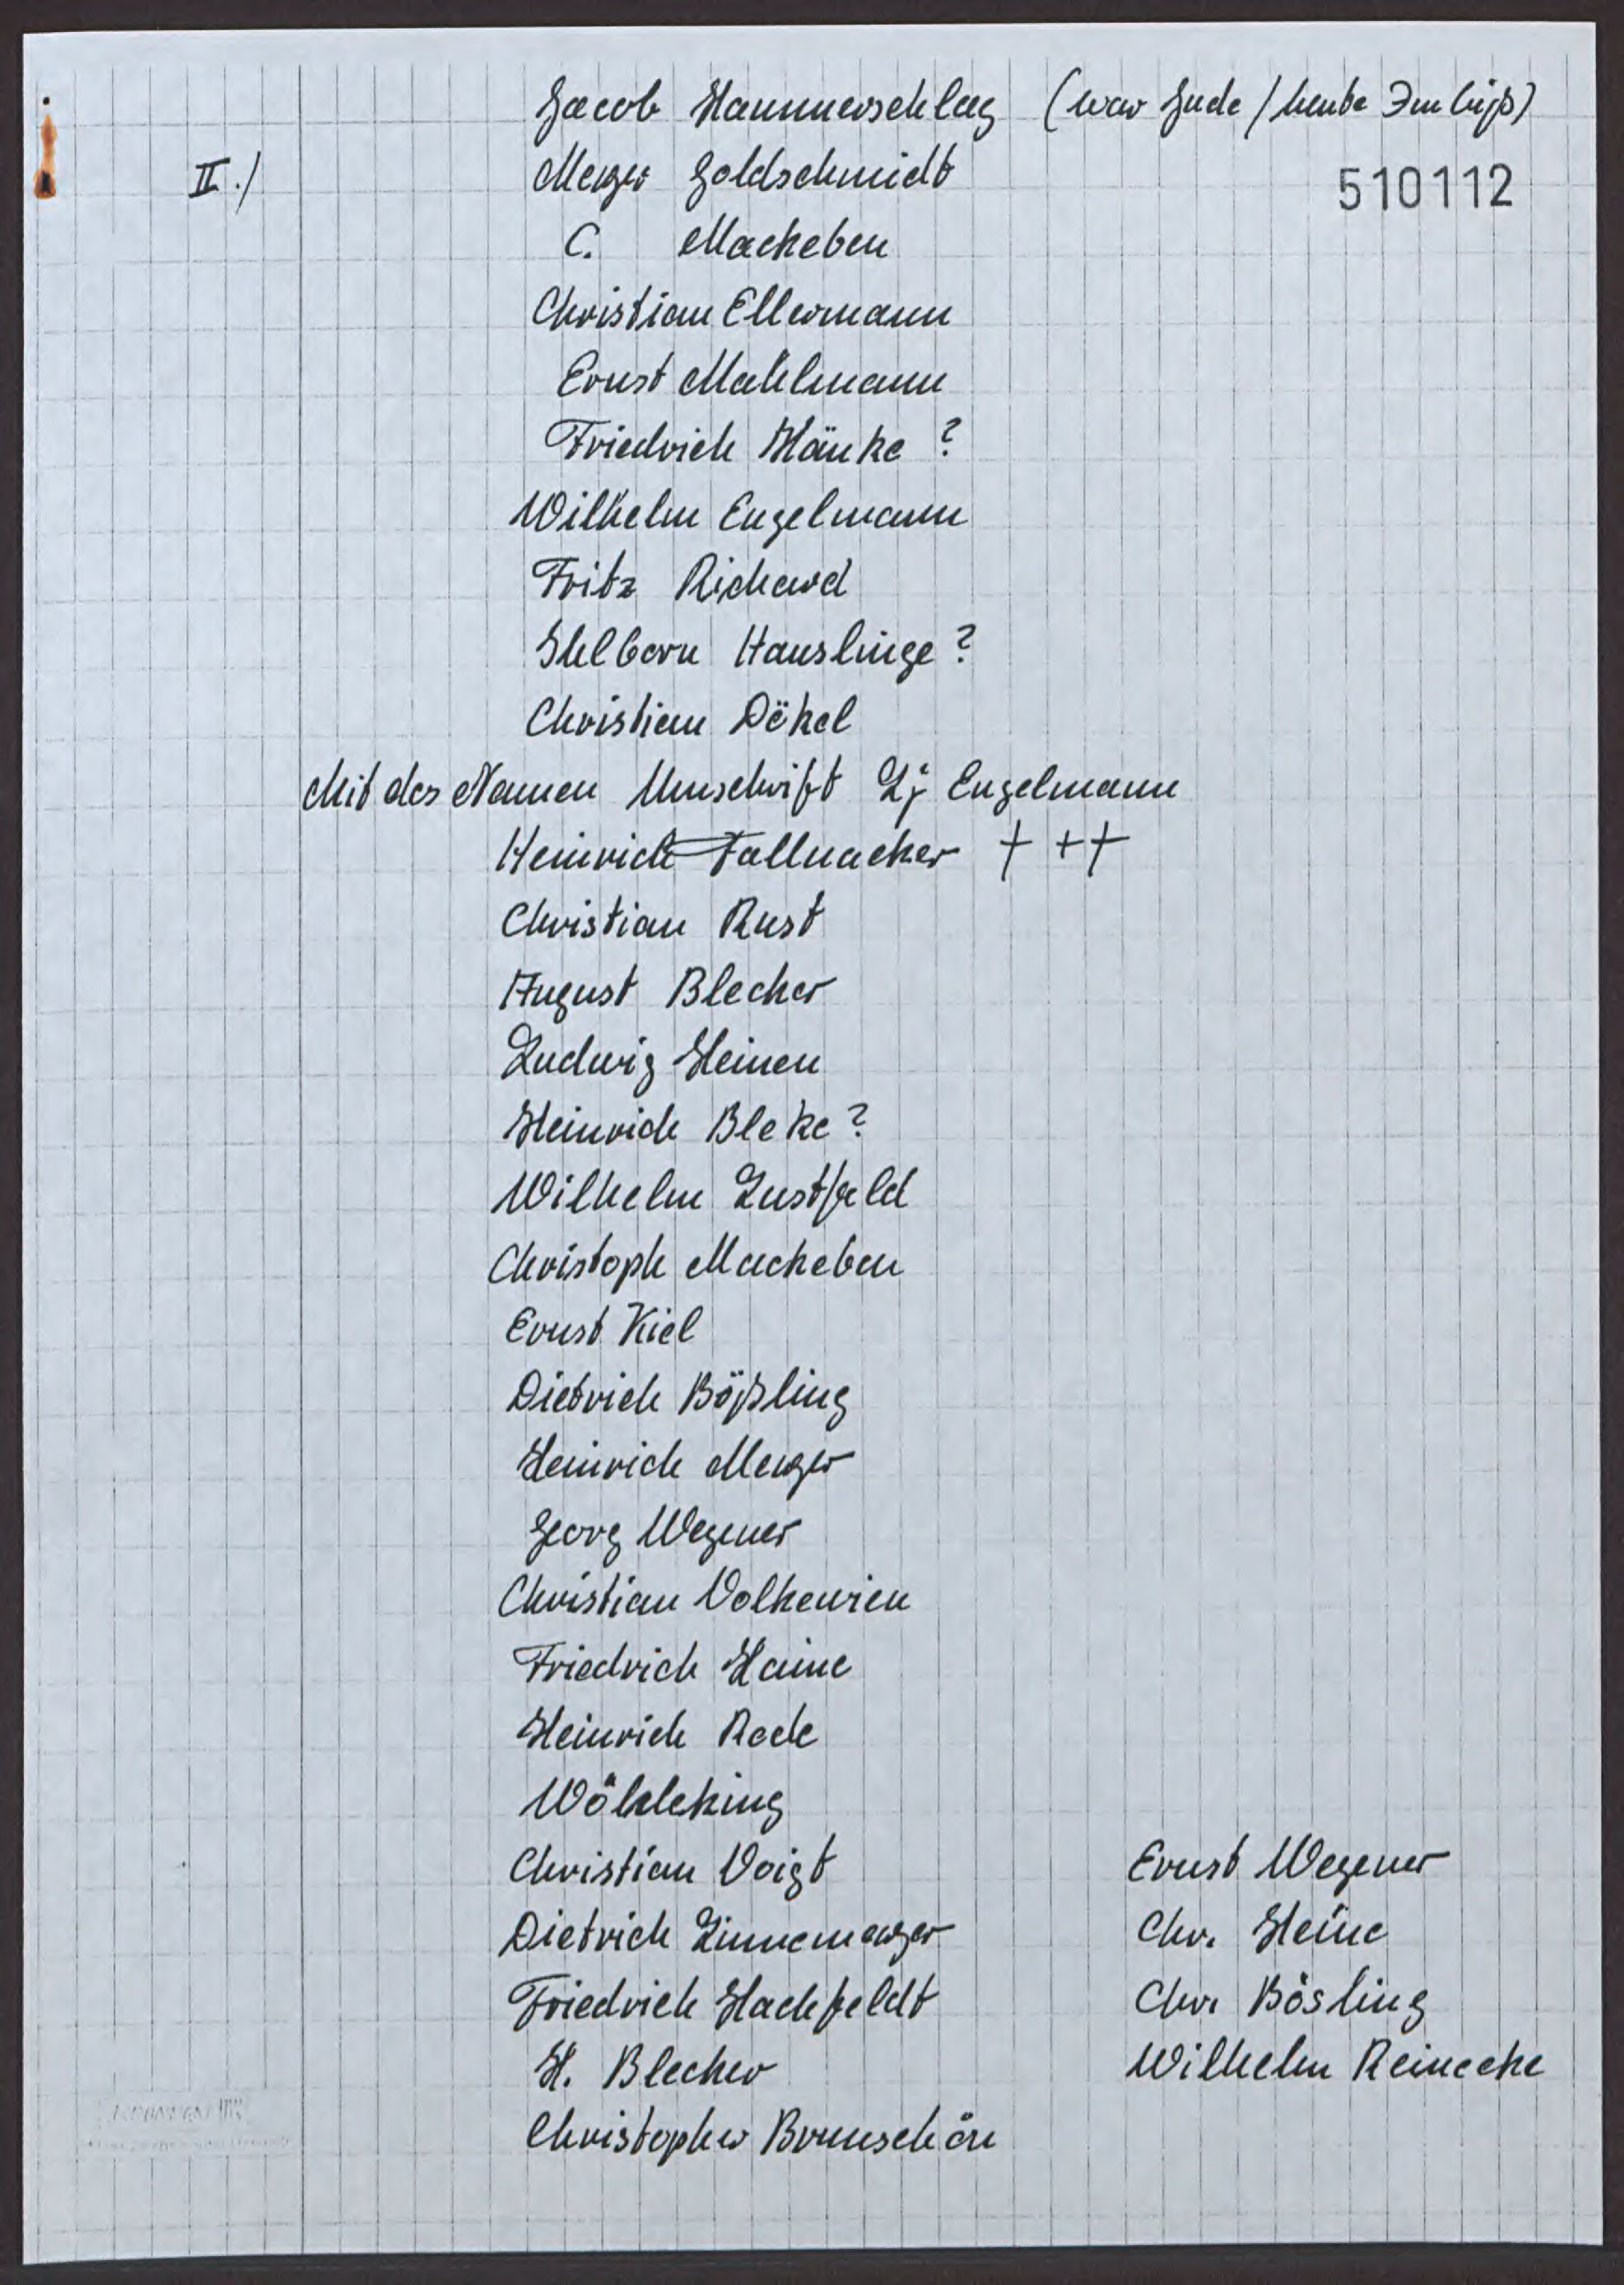 Jacob Hammerschlag (war Jude / heute Imbiß)
II./ Meyer Goldschmidt
510112
C. Mackeben
Christian Ellermann
Ernst Mahlmann
Friedrich Hänke ?
Wilhelm Engelmann
Fritz Richard
Hauslinge ?
Christian Dökel
Mit der Namen Umschrift Lj Engelmann
Heinrich Fallnacker + + +
Christian Rust
August Blecher
Ludwig Heinen
Heinrich Bleke ?
Wilhelm Lustfeld
Christoph Mackeben
Ernst Kiel
Dietrich Bößling
Heinrich Meyer
Georg Wegener
Christian Volkewien
Friedrich Haine
Heinrich Rode
Wölkleking
Christian Voigt
Dietrich Linnemeyer
Friedrich Hachfeldt
H. Blecher
Christopher Brunschön
Ernst Wegener
Chr. Heine
Chr. Bösling
Wilhelm Reinecke